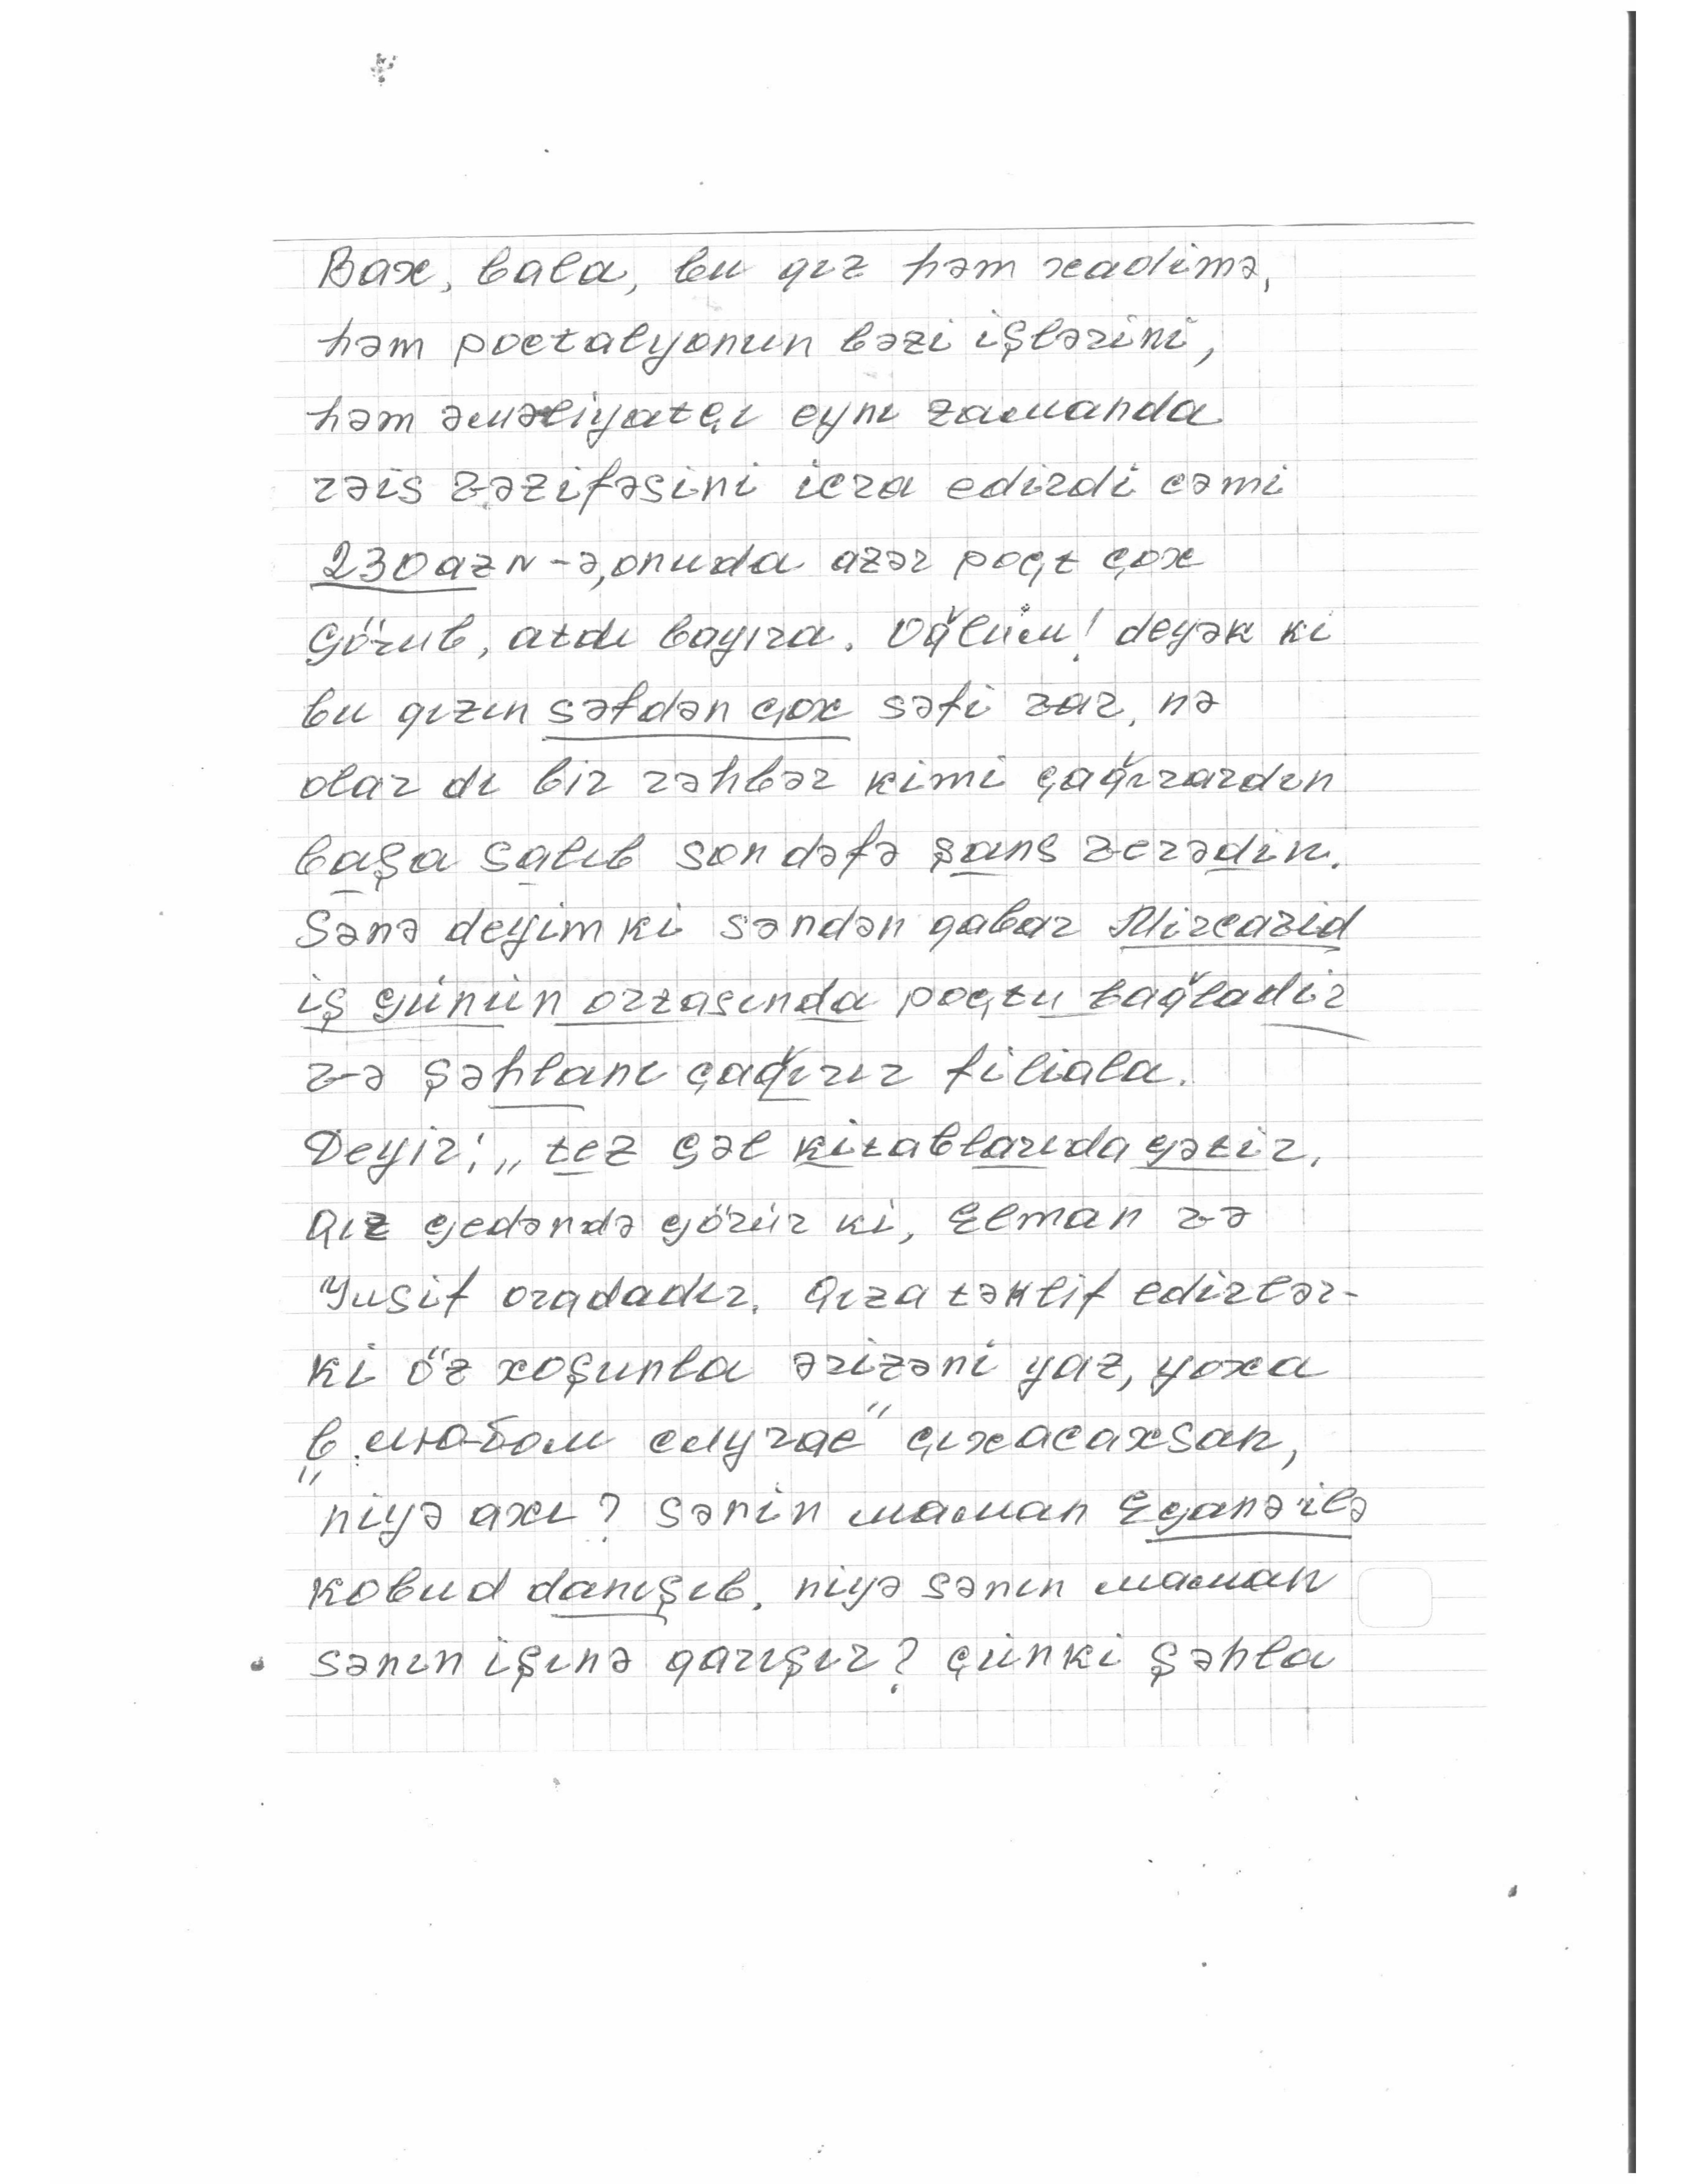 Bax, bala, bu qız həm xadimə,
həm poctalyonun bəzi işlərini,
həm əməliyatçı eynı zamanda
rəis vəzifəsini icra edirdi cəmi
230 azN-ə, onuda azər poçt çox
görub, atdı bayıra. Oğlüm! deyək ki
bu qızın səfdən çox səfi var, nə
olar dı bir rəhbər kimi çağırardın
başa salıb son dəfə şans verədin.
Sənə deyim ki səndən qabar Mircavid
iş günün ortasında poçtu bağladır
və Şəhlanı çağırır filiala.
Deyir: „tez gəl kitablarıda gətir.
Qız gedəndə görür ki, Elman və
Yusif oradadır. Qıza təklif edirlər-
ki öz xoşunla ərizəni yaz, yoxa
„в любом случае" çıxacaxsan,
niyə axı? Sənin maman Eganə ilə
kobud danışıb. niyə sənın maman
sənın işınə qarışır? çünki Şəhla